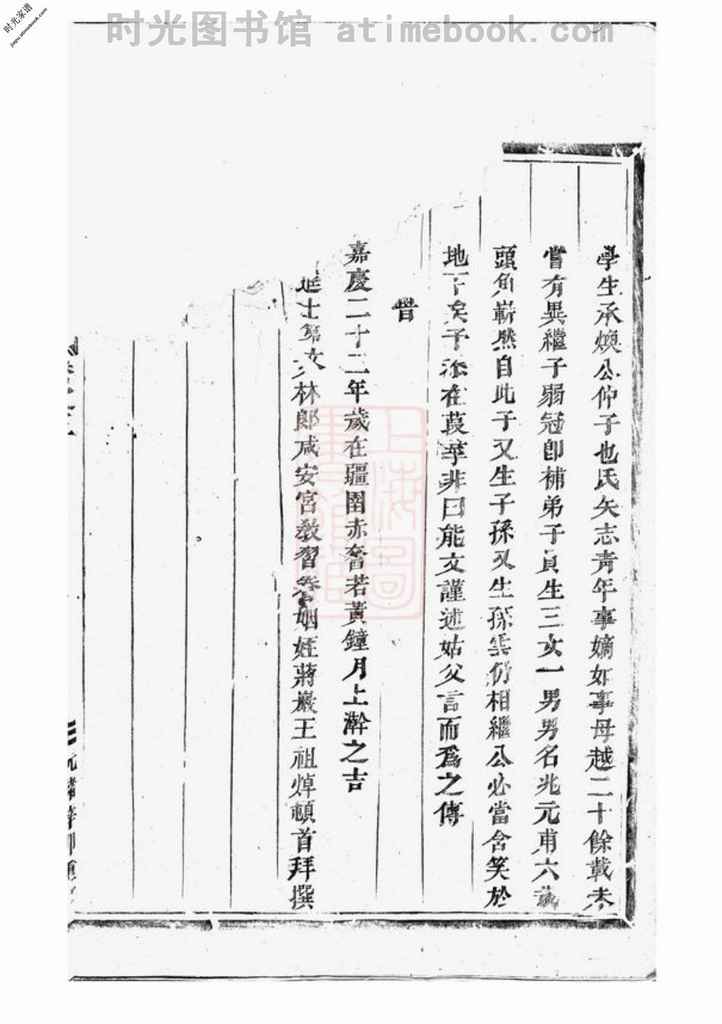 时光图书馆 atimebook.com
时光家谱
jiapu.atimebook.com
學生承煥公仲子也氏矢志青年事嫡如事母越二十餘載未
嘗有異繼子弱冠卽補弟子員生三女一男男名兆元甫六歲
頭角嶄然自此子又生子孫又生孫雲仍相繼公必當含笑於
地下矣予忝在葭莩非曰能文謹述姑父言而爲之傳
嘉慶二十二年歲在疆圉赤奮若黃鐘月上澣之吉
進士第文林郎咸安宮教習眷姻姪蔣巖王祖焯頓首拜撰
上海圖書館藏